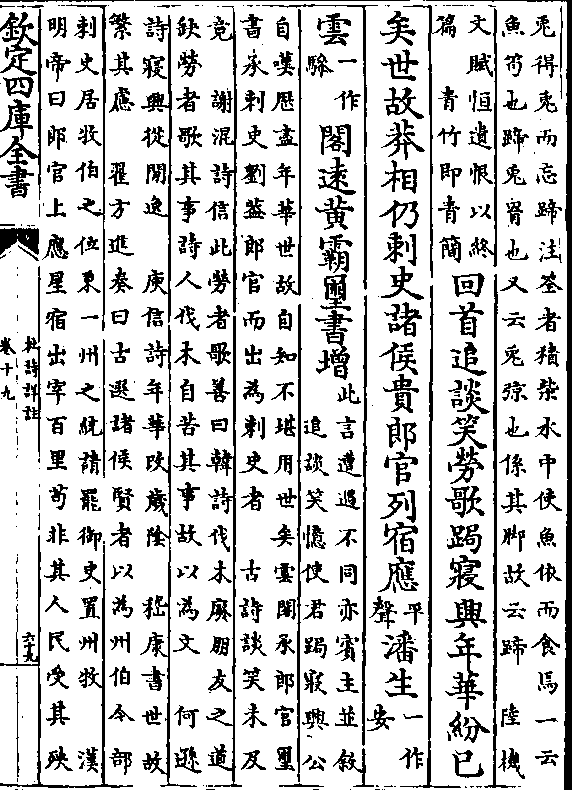 兎得兎而忘蹄注荃者積柴水中使魚依而食焉一云
魚笱也蹄兎罥也又云兎弶也係其脚故云蹄　陸機
文賦恒遺恨以終
篇　青竹即青簡
回首追談笑勞歌跼寢興年華紛已
矣世故莽相仍刺史諸侯貴郎官列宿應
平
聲
潘生
一作
安
雲
一作
騄
閣遠黃霸璽書增
此言遭遇不同亦賓主並敘
追談笑憶使君跼寢興公
自嘆歷盡年華世故自知不堪用世矣雲閣承郎官璽
書承刺史劉蓋郎官而出為刺史者　古詩談笑未及
竟　謝混詩信此勞者歌善曰韓詩伐木廢朋友之道
缺勞者歌其事詩人伐木自苦其事故以為文　何遜
詩寢興從閒逸　庾信詩年華改歲陰　嵇康書世故
繁其慮　翟方進奏曰古選諸侯賢者以為州伯今部
刺史居牧伯之位秉一州之統請罷御史置州牧　漢
明帝曰郎官上應星宿出宰百里苟非其人民受其殃
欽定四庫全書
杜詩詳註
卷十九
六十九